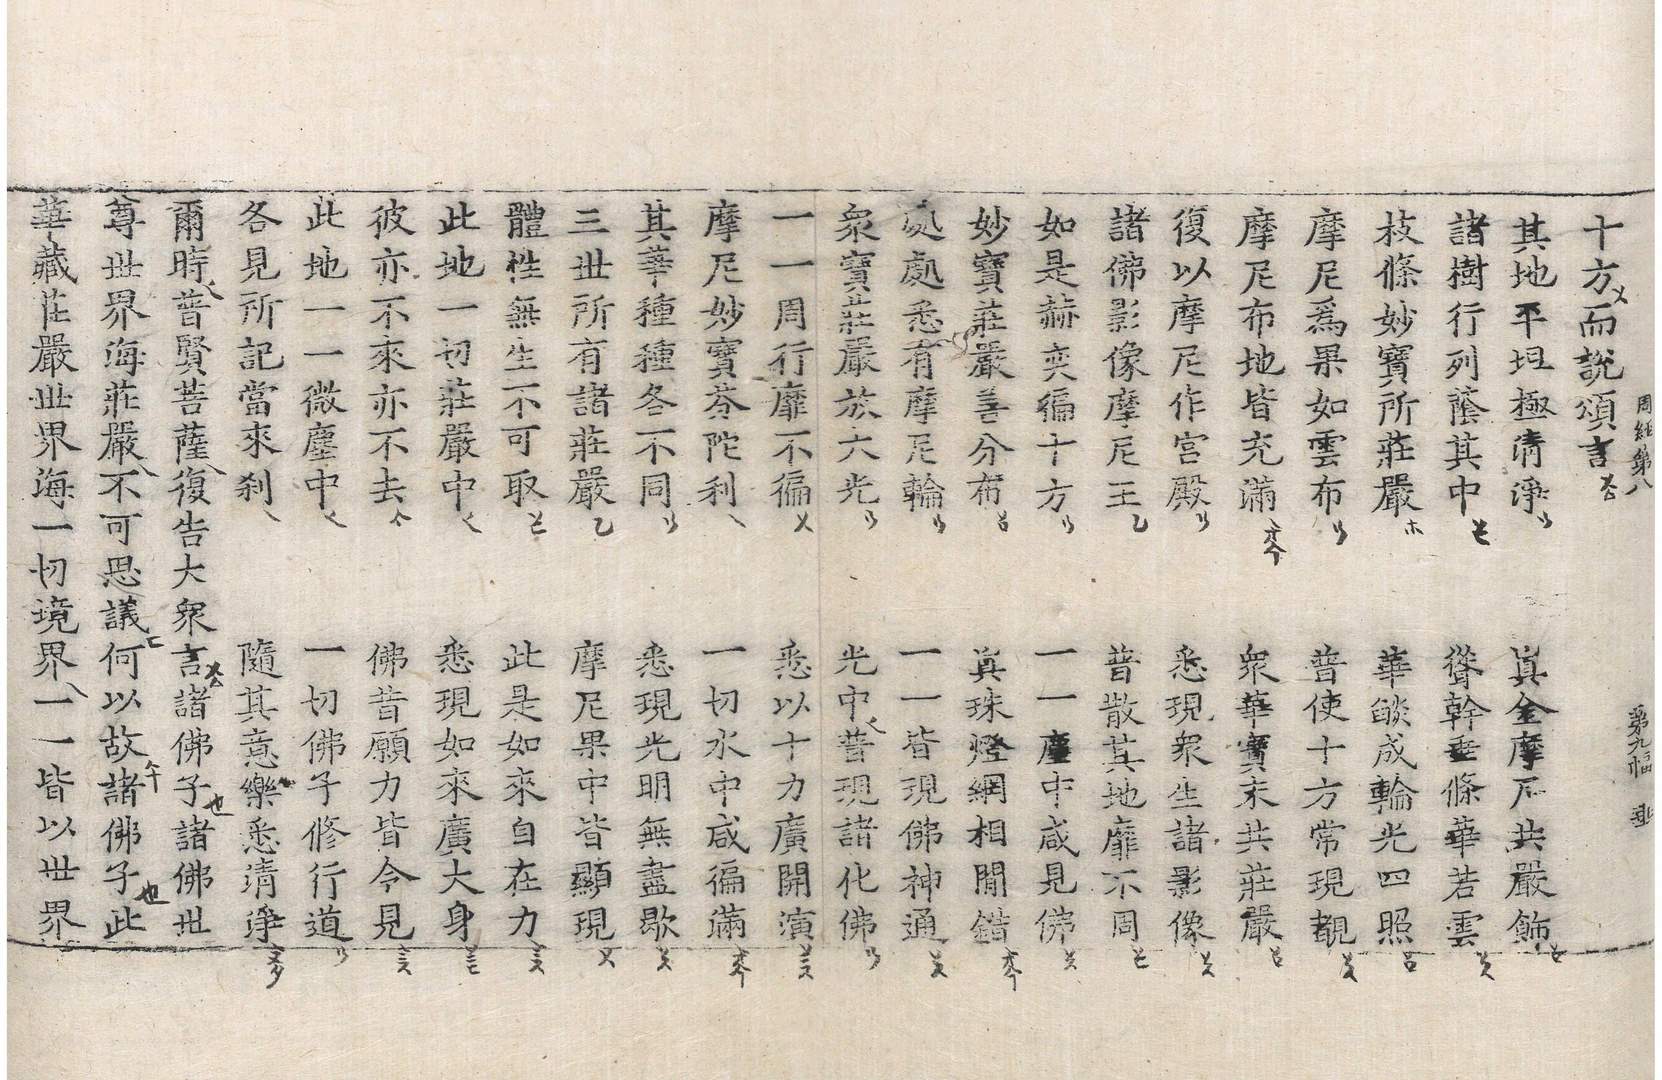 周經第八
第九幅
十方而說頌言
其地平坦極清淨 眞金摩尼共嚴飾
諸樹行列蔭其中 聳幹垂條華若雲
枝條妙寶所莊嚴 華燄成輪光四照
摩尼爲果如雲布 普使十方常現覩
摩尼布地皆充滿 衆華寶末共莊嚴
復以摩尼作宮殿 悉現衆生諸影像
諸佛影像摩尼王 普散其地靡不周
如是赫奕徧十方 一一塵中咸見佛
妙寶莊嚴善分布 眞珠燈網相間錯
處處悉有摩尼輪 一一皆現佛神通
衆寶莊嚴放大光 光中普現諸化佛
一一周行靡不徧 悉以十力廣開演
摩尼妙寶芬陀利 一切水中咸徧滿
其華種種各不同 悉現光明無盡歇
三世所有諸莊嚴 摩尼果中皆顯現
體性無生不可取 此是如來自在力
此地一切莊嚴中 悉現如來廣大身
彼亦不來亦不去 佛昔願力皆令見
此地一一微塵中 一切佛子修行道
各見所記當來刹 隨其意樂悉清淨
爾時普賢菩薩復告大衆言諸佛子諸佛世
尊世界海莊嚴不可思議何以故諸佛子此
華藏莊嚴世界海一切境界一一皆以世界